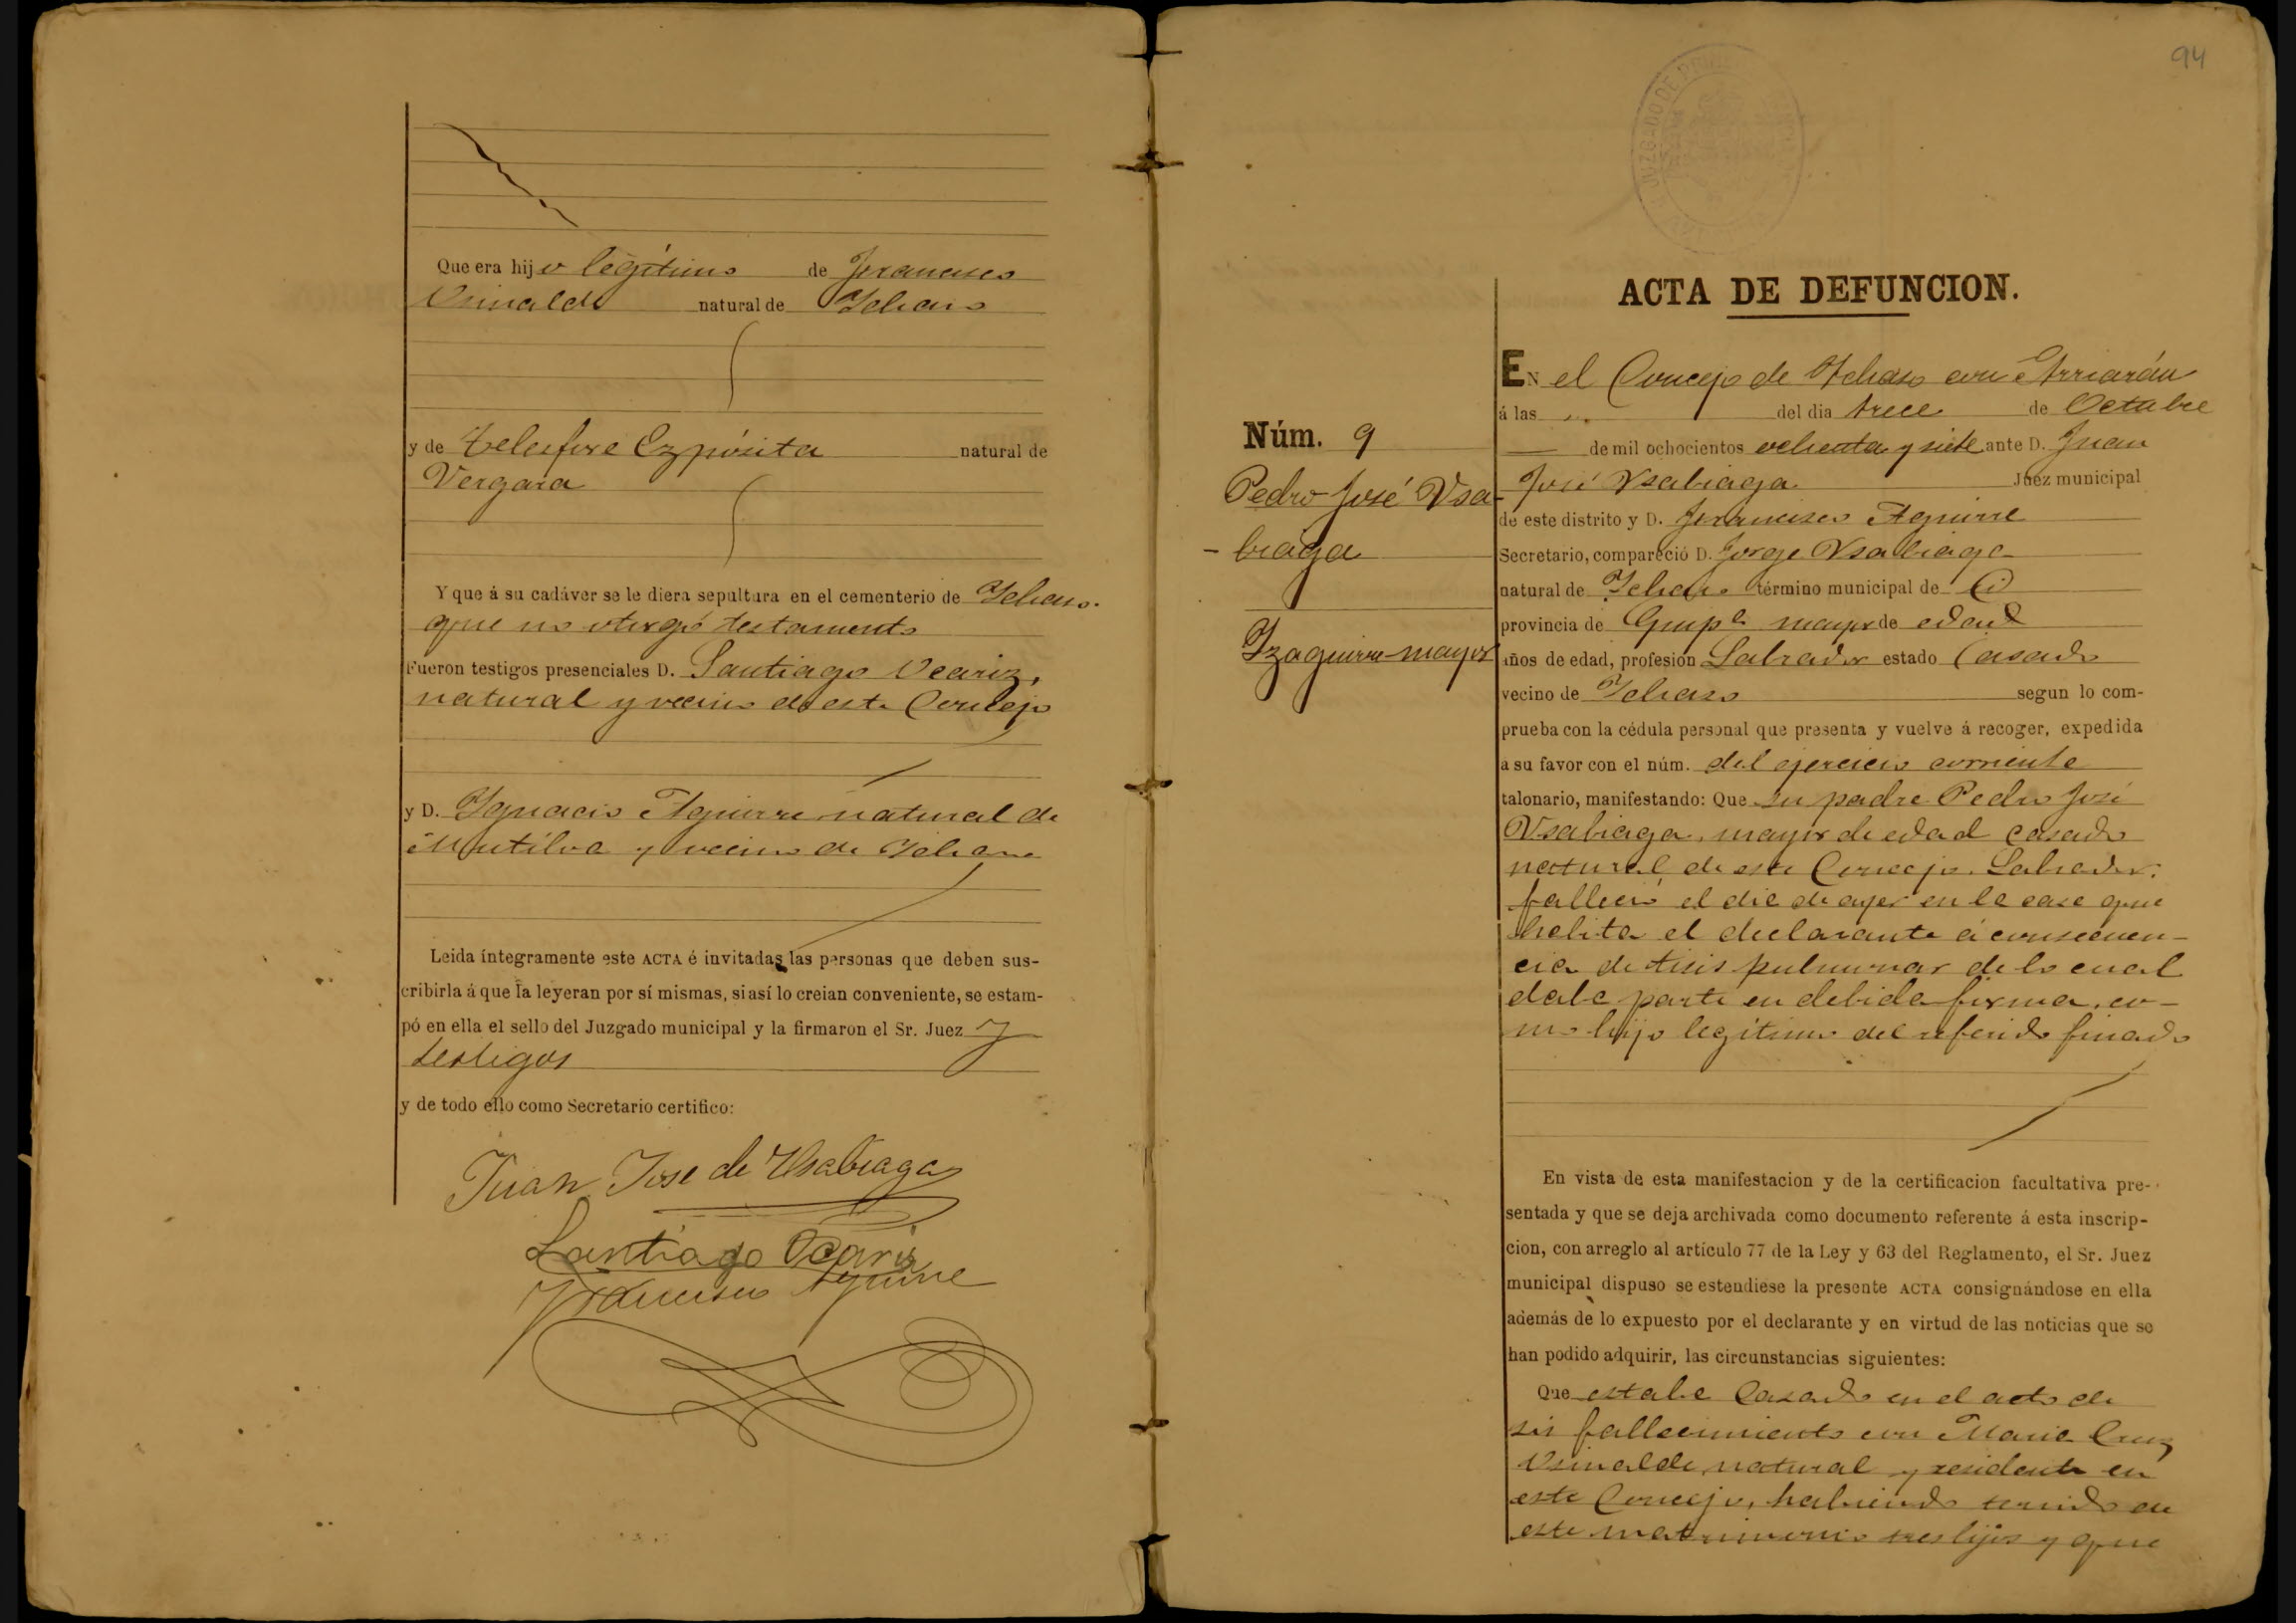 Que era hijo legítimo de Francisco
Usinalde natural de Ychaso
y de Telesfora Expósita natural de
Vergara
Y que á su cadáver se le diera sepultura en el cementerio de Ychaso.
que no otorgó testamento
Fueron testigos presenciales D. Santiago Ocariz,
natural y vecino de este Concejo
y D. Ygnacio Aguirre natural de
Mutiloa y vecino de Ychaso
Leida íntegramente este ACTA é invitadas las personas que deben sus-
cribirla á que la leyeran por sí mismas, si así lo creian conveniente, se estam-
pó en ella el sello del Juzgado municipal y la firmaron el Sr. Juez y
testigos
y de todo ello como Secretario certifico:
Juan Jose de Usabiaga
Santiago Ocariz
Francisco Aguirre
94
JUZGADO DE
ACTA DE DEFUNCION.
Núm. 9
Pedro José Usa-
-biaga
Yzaguirre-mayor
EN el Concejo de Ychaso con Arriarán
á las ,, del dia trece de Octubre
de mil ochocientos ochenta y siete ante D. Juan
José Usabiaga Juez municipal
de este distrito y D. Francisco Aguirre
Secretario, compareció D. Jorge Usabiaga
natural de Ychaso término municipal de
provincia de Guipª mayor de edad
años de edad, profesion Labrador estado Casado
vecino de Ychaso segun lo com-
prueba con la cédula personal que presenta y vuelve á recoger, expedida
a su favor con el núm. del ejercicio corriente
talonario, manifestando: Que su padre Pedro José
Usabiaga, mayor de edad casado
natural de este Concejo. Labrador.
falleció el dia de ayer en la casa que
habita el declarante á consecuen-
cia de tisis pulmonar de lo cual
daba parte en debida forma, co-
mo hijo legítimo del referido finado
En vista de esta manifestacion y de la certificacion facultativa pre-
sentada y que se deja archivada como documento referente á esta inscrip-
cion, con arreglo al artículo 77 de la Ley y 63 del Reglamento, el Sr. Juez
municipal dispuso se estendiese la presente ACTA consignándose en ella
además de lo expuesto por el declarante y en virtud de las noticias que se
han podido adquirir, las circunstancias siguientes:
Que estaba Casado en el acto de
su fallecimiento con Maria Cruz
Usinalde, natural y residente en
este Concejo, habiendo tenido en
este matrimonio tres hijos y que